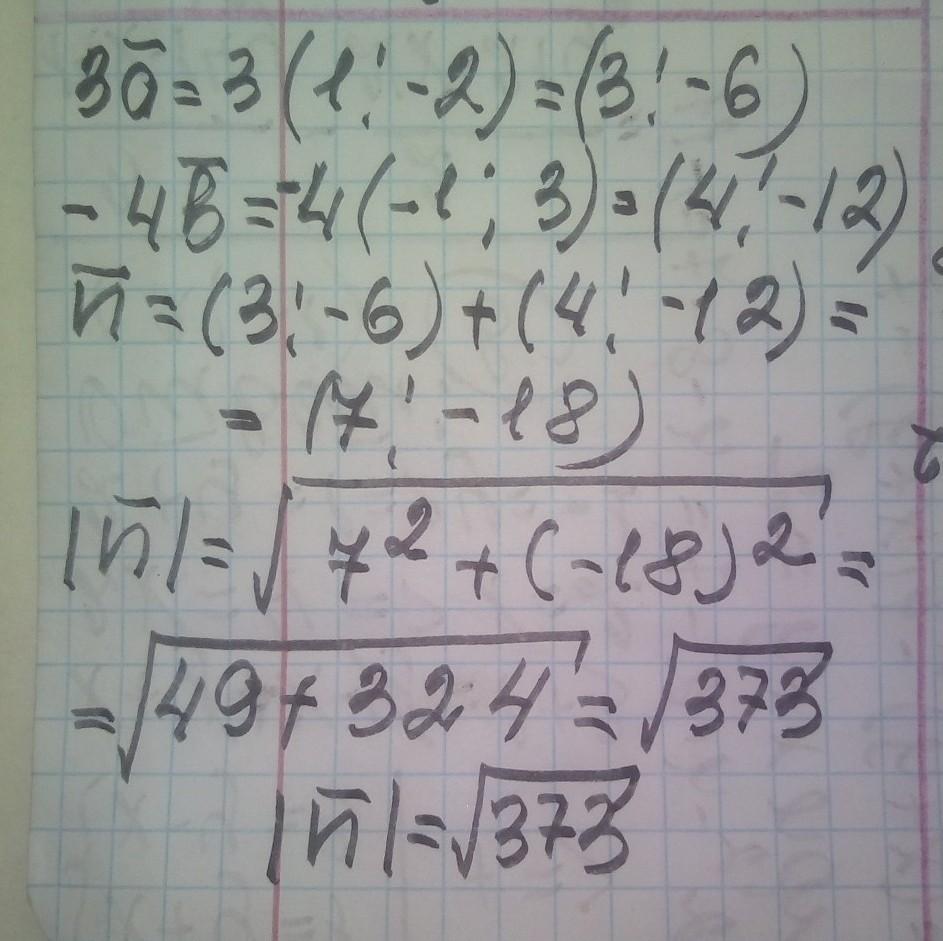 3ā = 3(1; -2) = (3; -6)
-4b̄ = -4(-1; 3) = (4; -12)
n̄ = (3; -6) + (4; -12) =
= (7; -18)
|n̄| = √(7² + (-18)²) =
= √(49 + 324) = √373
|n̄| = √373